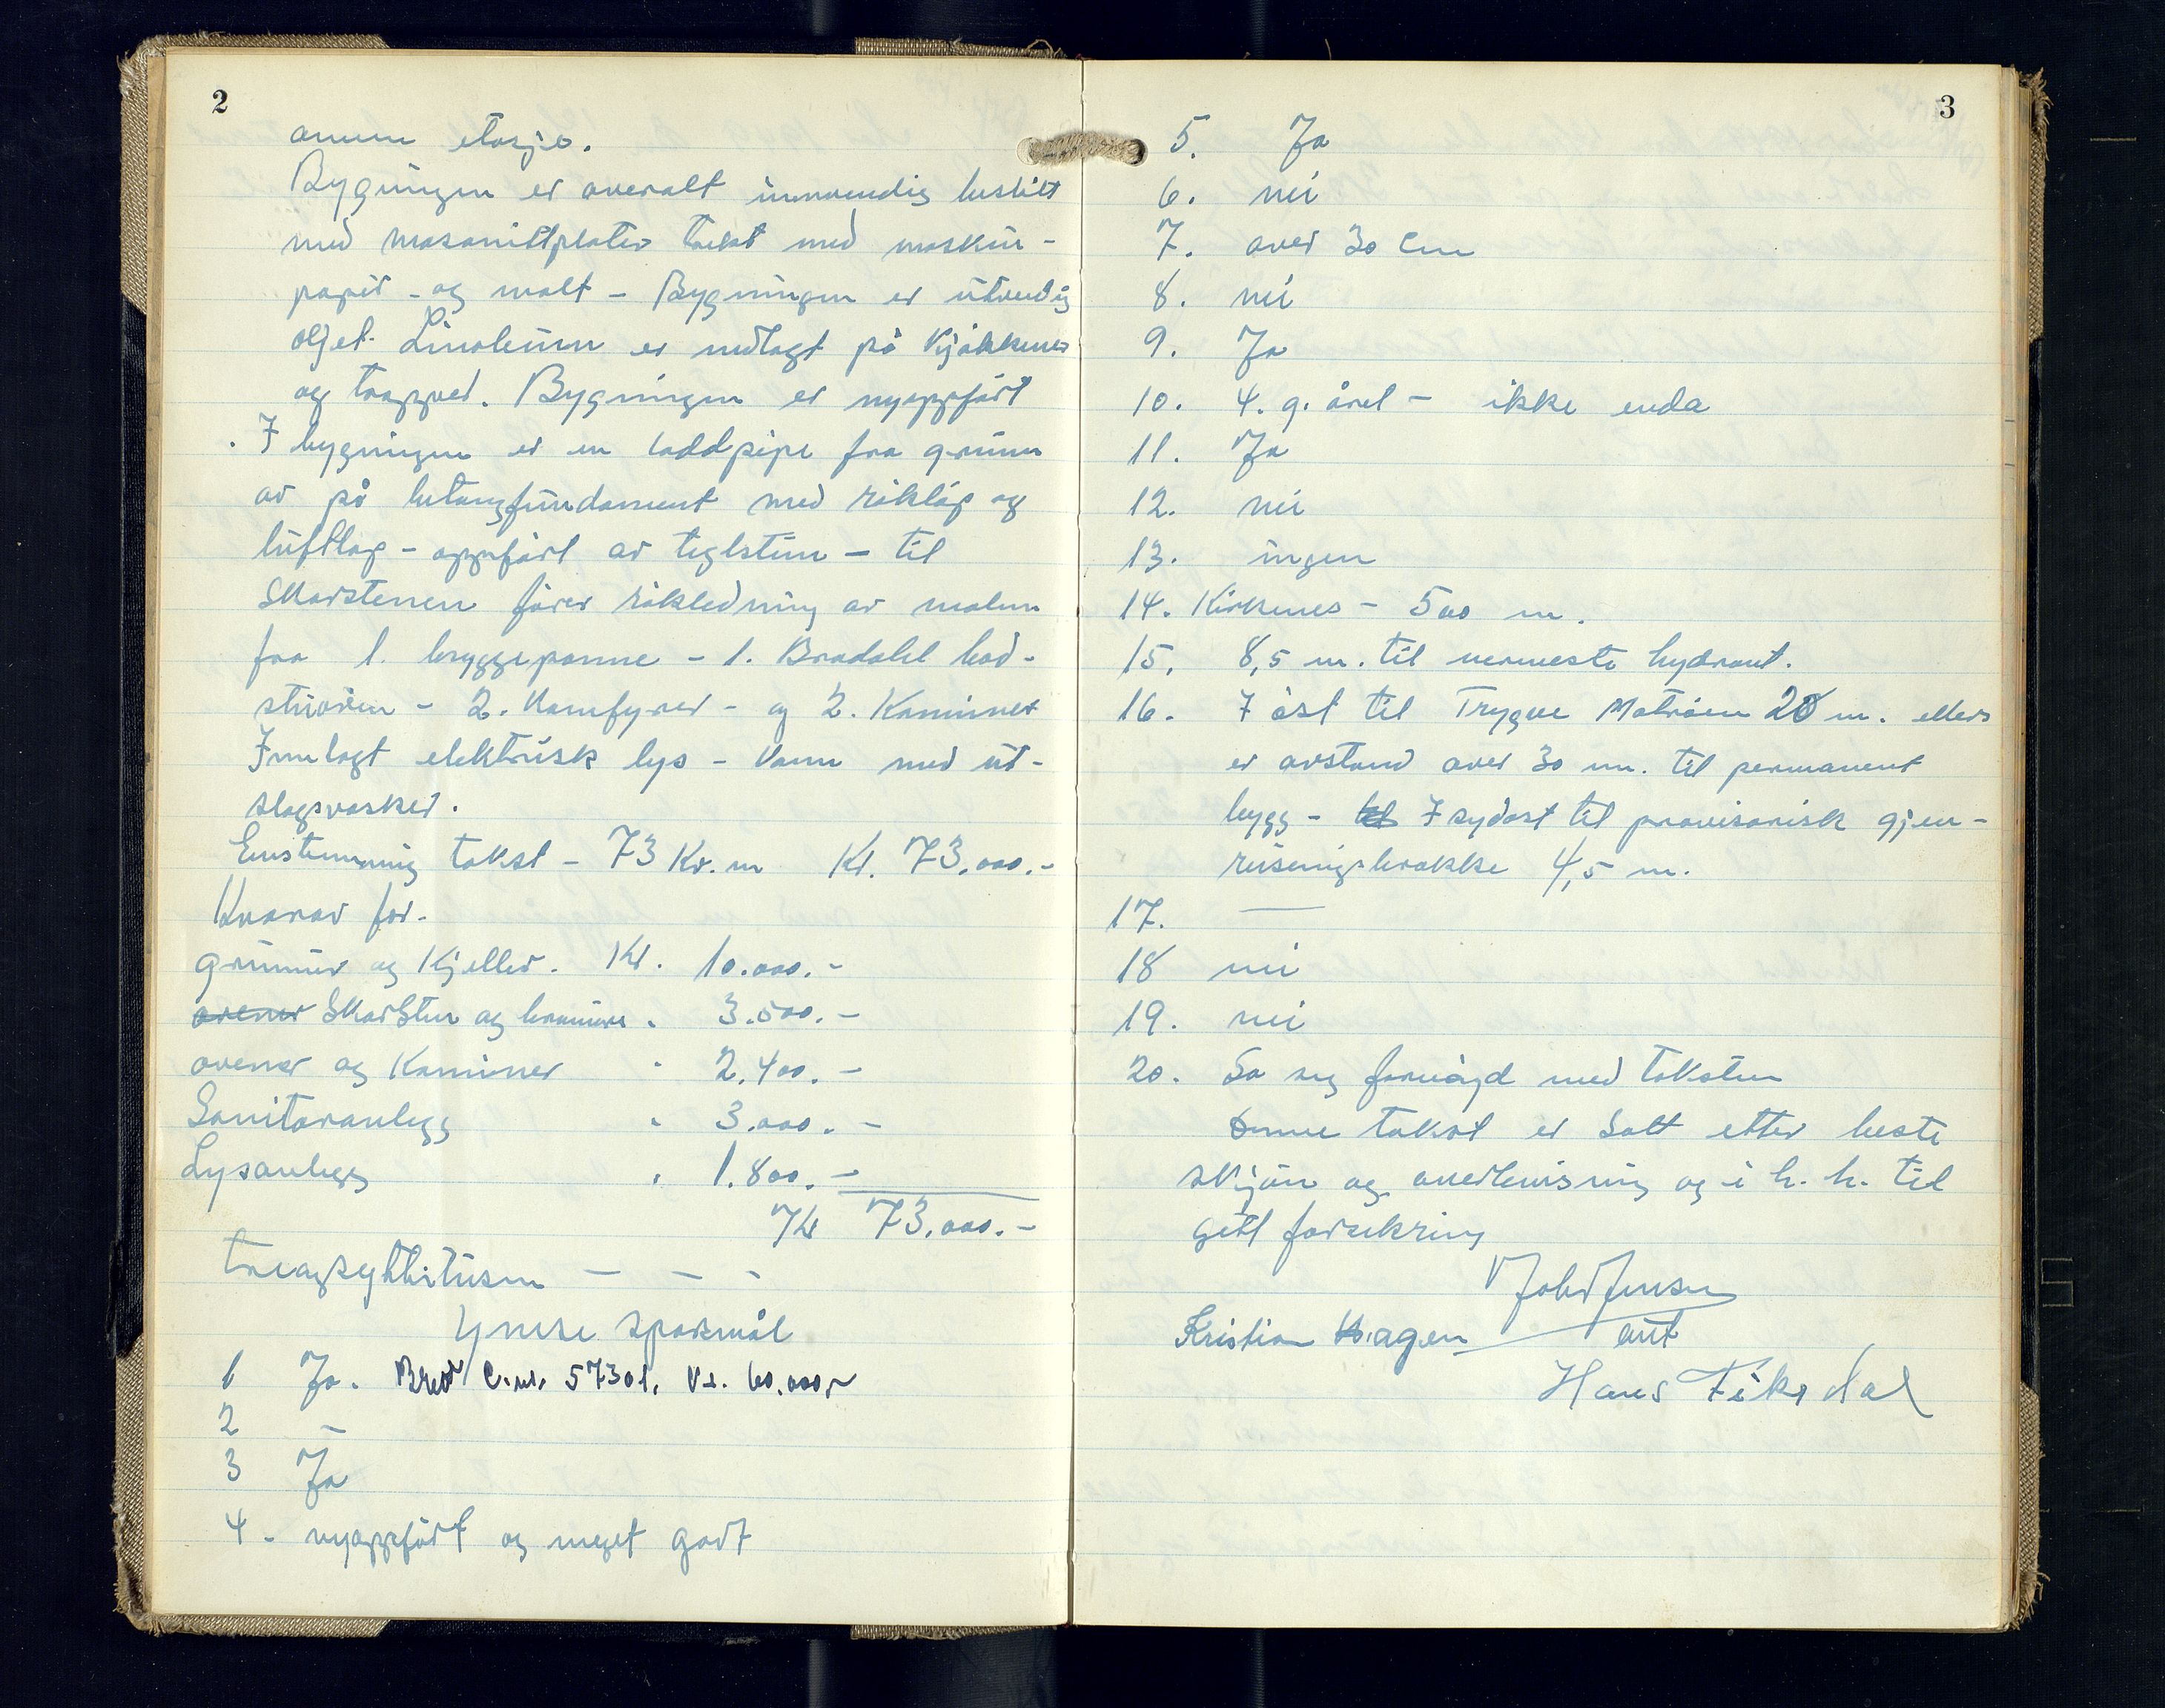 2
annen etasje.
Bygningen er overalt innvendig beslått
med masonittplater trekt med maskin-
papir - og malt - Bygningen er utvendig
oljet. Linoleum er nedlagt på Kjøkkener
og trapper. Bygningen er nyoppført
. I bygningen er en loddpipe fra grunn
av på betongfundament med rökløp og
luftløp - oppført av teglsten - til
Skorstenen fører rökledning av malm
fra 1. bryggepanne - 1. Bradahl bad-
stuoven - 2. Komfyrer - og 2. Kaminer
Innlagt elektrisk lys - Vann med ut-
slagsvasker.
Enstemmig takst - 73 Kv.m Kr. 73.000.-
Hvorav for.
grunnmur og Kjeller. Kr. 10.000.-
ovener Skorsten og brannmur " 3.500.-
ovener og Kaminer " 2.400.-
Sanitæranlegg " 3.000.-
Lysanlegg " 1.800.-
Kr 73.000.-
- - -
Ymse spørsmål
1 Ja. Brev C.nr. 57301. Kr. 60.000,-
2 -
3 Ja
4 - nyoppført og meget godt
3
5. Ja
6. nei
7. over 30 cm
8. nei
9. Ja
10. 4. g. året - ikke enda
11. Ja
12. nei
13. ingen
14. Kirkenes - 500 m.
15. 8,5 m. til nermeste hydrant.
16. I öst til Trygve 20 m. ellers
er avstand over 30 m. til permanent
bygg - til I sydøst til provisorisk gjen-
reisningsbrakke 4,5 m.
17. —
18 nei
19. nei
20. Sa seg fornøyd med taksten
Denne takst er Satt etter beste
skjøn og overbevisning og i h. h. til
gitt forsikring
Kristian Hagen
Hans Fiksdal